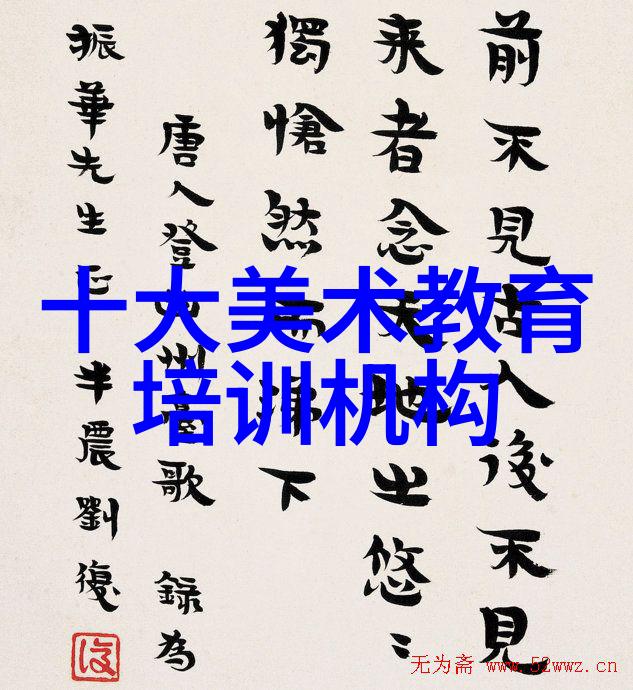 前不見古人後不見
来者念天地之悠〻
獨愴然而涕下
唐人登幽州臺歌 錄為
振華先生正 半農劉復
復
十大美术教育
培训机构
无为斋 www.52wwz.cn